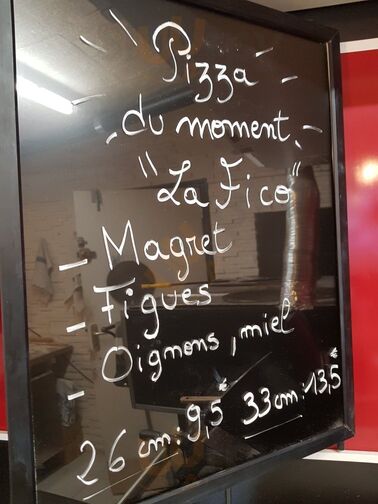 Pizza
du moment
"La Fico"
- Magret
- Figues
- Oignons, miel
26 cm: 9,5€ 33cm: 13,5€